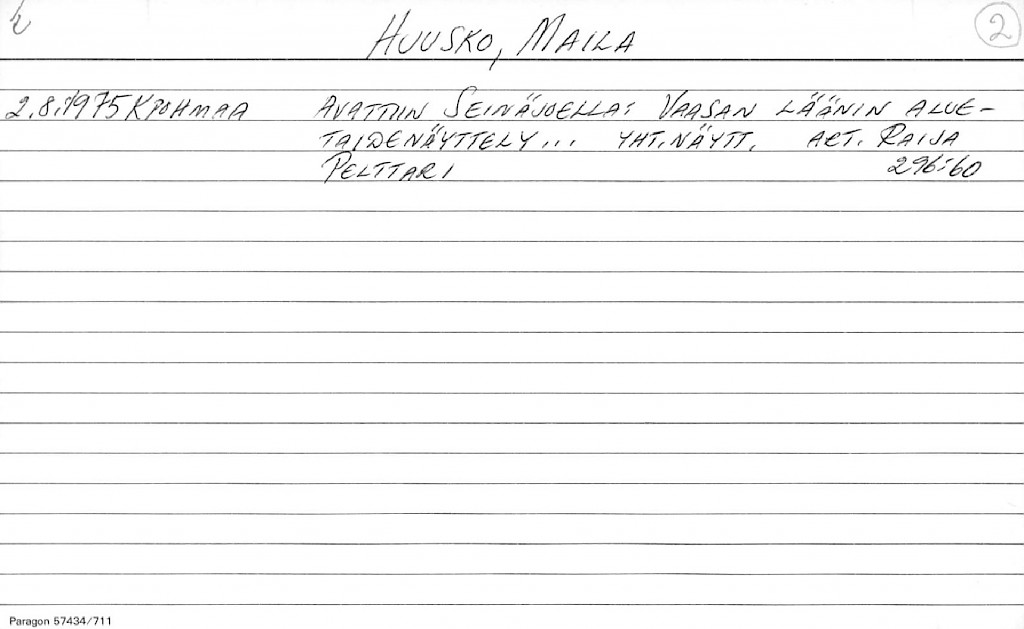 HUUSKO, MAILA
2
2.8.1975 KPOHMAA AVATTIIN SEINÄJOELLA: VAASAN LÄÄNIN ALUE-
TAIDENÄYTTELY... YHT.NÄYTT. ART. RAIJA
PELTTARI 296:60
Paragon 57434/711